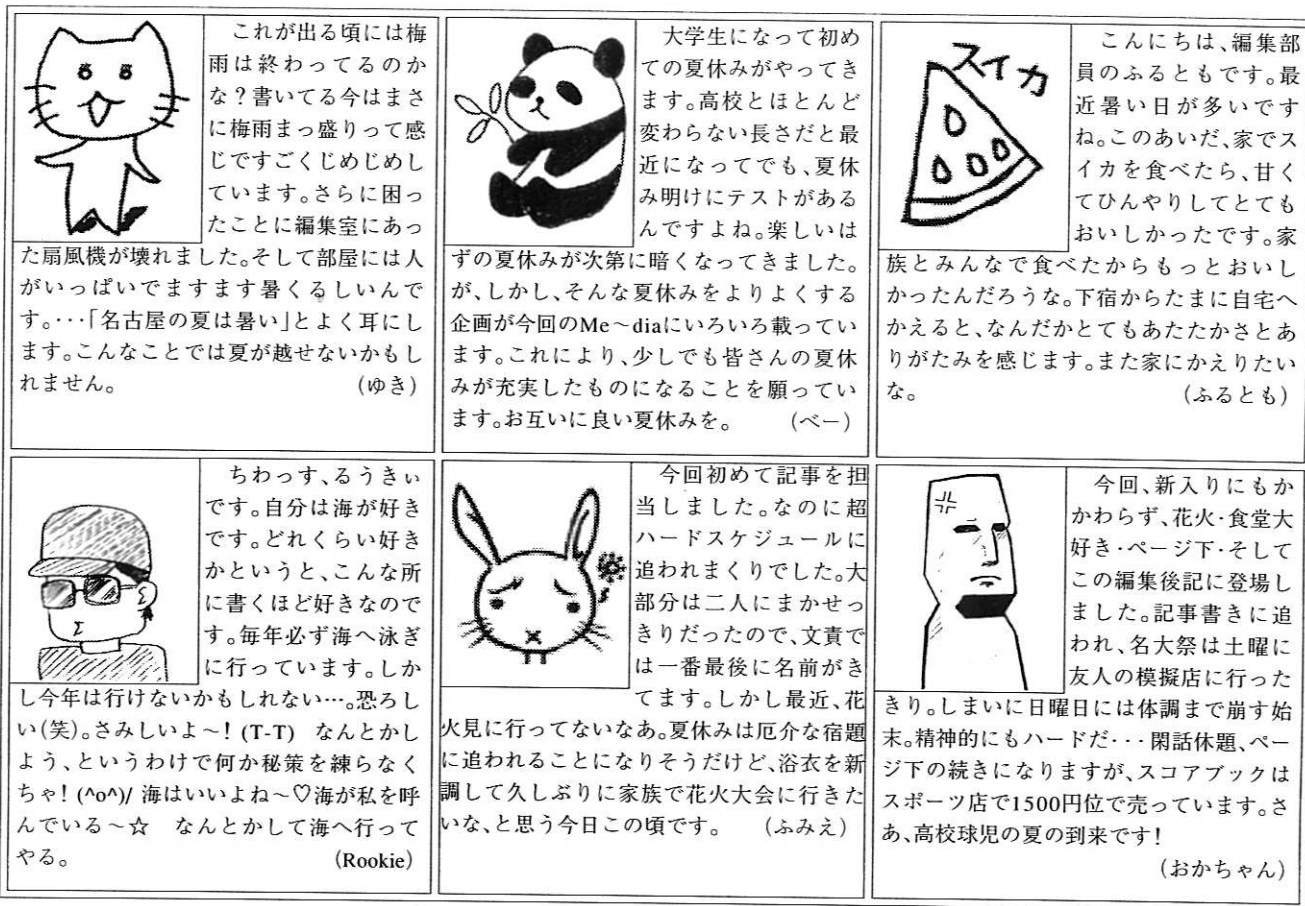 これが出る頃には梅
雨は終わってるのか
な？書いてる今はまさ
に梅雨まっ盛りって感
じですごくじめじめし
ています。さらに困っ
たことに編集室にあっ
た扇風機が壊れました。そして部屋には人
がいっぱいでますます暑くるしいんで
す。･･･「名古屋の夏は暑い」とよく耳にし
ます。こんなことでは夏が越せないかもし
れません。 (ゆき)
大学生になって初め
ての夏休みがやってき
ます。高校とほとんど
変わらない長さだと最
近になってでも、夏休
み明けにテストがある
んですよね。楽しいは
ずの夏休みが次第に暗くなってきました。
が、しかし、そんな夏休みをよりよくする
企画が今回のMe～diaにいろいろ載ってい
ます。これにより、少しでも皆さんの夏休
みが充実したものになることを願ってい
ます。お互いに良い夏休みを。 (べー)
スイカ
こんにちは、編集部
員のふるともです。最
近暑い日が多いです
ね。このあいだ、家でス
イカを食べたら、甘く
てひんやりしてとても
おいしかったです。家
族とみんなで食べたからもっとおいし
かったんだろうな。下宿からたまに自宅へ
かえると、なんだかとてもあたたかさとあ
りがたみを感じます。また家にかえりたい
な。 (ふるとも)
ちわっす、るうきぃ
です。自分は海が好き
です。どれくらい好き
かというと、こんな所
に書くほど好きなので
す。毎年必ず海へ泳ぎ
に行っています。しか
し今年は行けないかもしれない…。恐ろし
い(笑)。さみしいよ～! (T-T) なんとかし
よう、というわけで何か秘策を練らなく
ちゃ! (^o^)/ 海はいいよね～♡海が私を呼
んでいる～☆ なんとかして海へ行って
やる。 (Rookie)
今回初めて記事を担
当しました。なのに超
ハードスケジュールに
追われまくりでした。大
部分は二人にまかせっ
きりだったので、文責で
は一番最後に名前がき
てます。しかし最近、花
火見に行ってないなあ。夏休みは厄介な宿題
に追われることになりそうだけど、浴衣を新
調して久しぶりに家族で花火大会に行きた
いな、と思う今日この頃です。 (ふみえ)
今回、新入りにもか
かわらず、花火･食堂大
好き･ページ下･そして
この編集後記に登場し
ました。記事書きに追
われ、名大祭は土曜に
友人の模擬店に行った
きり。しまいに日曜日には体調まで崩す始
末。精神的にもハードだ･･･閑話休題、ペー
ジ下の続きになりますが、スコアブックは
スポーツ店で1500円位で売っています。さ
あ、高校球児の夏の到来です!
(おかちゃん)